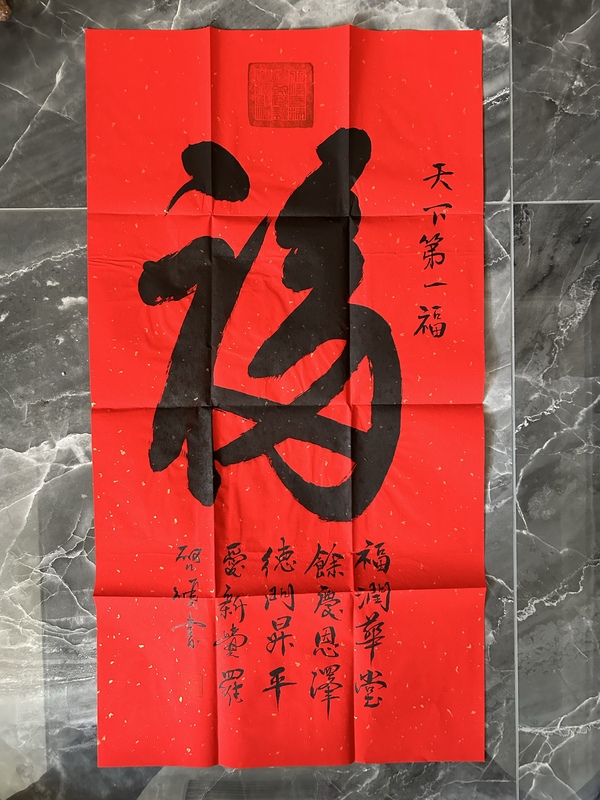 天下第一福
福
福潤華堂
餘慶恩澤
德門昇平
愛新覺羅
書